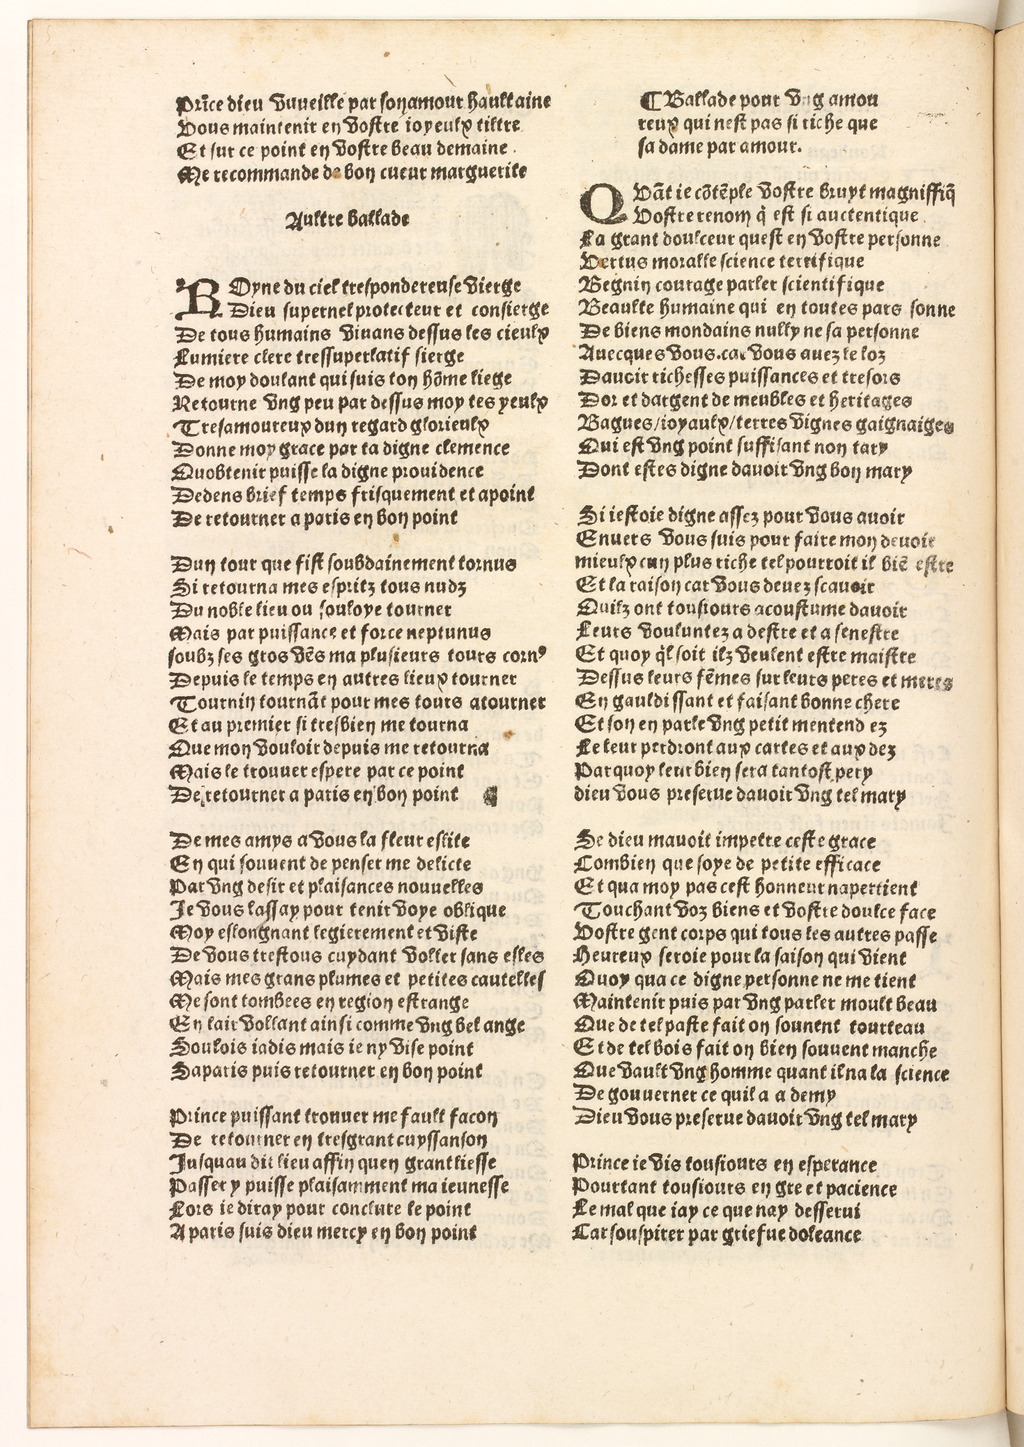 Prīce dieu vuueille par son amour haultaine
Vous maintenir en vostre ioyeulx tiltre
Et sur ce point en vostre beau demaine.
Me recommande de bon cueur marguerite
Aultre ballade
ROyne du ciel trespondereuse vierge
Dieu supernel protecteur et consierge
De tous humains viuans dessus les cieulx
Lumiere clere tressuperlatif sierge
De moy doulant qui suis ton hōme liege
Retourne vng peu par dessus moy tes yeulx
Tresamoureux dun regard glorieulx
Donne moy grace par ta digne clemence
Quobtenir puisse la digne prouidence
Dedens brief temps frisquement et apoint
De retourner a paris en bon point
Dun tour que fist soubdainement tornus
Si retourna mes espritz tous nudz
Du noble lieu ou souloye tourner
Mais par puissance et force neptunus
soubz ses gros vēs ma plusieurs tours cornꝰ
Depuis le temps en autres lieux tourner
Tournin tournāt pour mes tours atourner
Et au premier si tresbien me tourna
Que mon vouloir depuis me retourna
Mais le trouuer espere par ce point
De retourner a paris en bon point
De mes amys a vous la fleur eslite
En qui souuent de penser me delicte
Par vng desir et plaisances nouuelles
Je vous lassay pour tenir voye oblique
Moy eslongnant legierement et viste
De vous trestous cuydant voller sans esles
Mais mes grans plumes et petites cautelles
Me sont tombees en region estrange
En lair vollant ainsi comme vng bel ange
Soulois iadis mais ie ny vise point
Saparis puis retourner en bon point
Prince puissant trouuer me fault facon
De retourner en tresgrant cuyssanson
Jusquau dit lieu affin quen grant liesse
Passer y puisse plaisamment ma ieunesse
Lors ie diray pour conclure le point
A paris suis dieu mercy en bon point
¶ Ballade pour vng amou
reux qui nest pas si riche que
sa dame par amour.
QVāt ie cōtēple vostre bruyt magniffiq̄
Vostre renom q̄ est si auctentique
La grant doulceur quest en vostre personne
Vertus moralle science terrifique
Begnin courage parler scientifique
Beaulte humaine qui en toutes pars sonne
De biens mondains nully ne sa personne
Auecques vous.car vous auez le loz
Dauoir richesses puissances et tresors
Dor et dargent de meubles et heritages
Bagues/ioyaulx/terres vignes gaignaiges
Qui est vng point suffisant non tary
Dont estes digne dauoir vng bon mary
Si iestoie digne assez pour vous auoir
Enuers vous suis pour faire mon deuoir
mieulx cun plus riche tel pourroit il biē estre
Et la raison car vous deuez scauoir
Quilz ont tousiours acoustume dauoir
Leurs vouluntez a destre et a senestre
Et quoy q̄l soit ilz veulent estre maistre
Dessus leurs fēmes sur leurs peres et meres
En gauldissant et faisant bonne chere
Et son en parle vng petit mentend ez
Le leur perdront aux cartes et aux dez
Parquoy leur bien sera tantost pery
dieu vous preserue dauoir vng tel mary
Se dieu mauoit impetre ceste grace
Combien que soye de petite efficace
Et qua moy pas cest honneur napertient
Touchant voz biens et vostre doulce face
Vostre gent corps qui tous les autres passe
Heureux seroie pour la saison qui vient
Quoy qua ce digne personne ne me tient
Maintenir puis par vng parler moult beau
Que de tel paste fait on souuent tourteau
Et de tel bois fait on bien souuent manche
Que vault vng homme quant il na la science
De gouuerner ce quil a a demy
Dieu vous preserue dauoir vng tel mary
Prince ie vis tousiours en esperance
Pourtant tousiours en gre et pacience
Le mal que iay ce que nay desserui
Car souspirer par griefue doleance